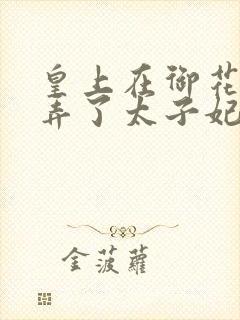 皇上在御花
弄了太子妃
金菠萝